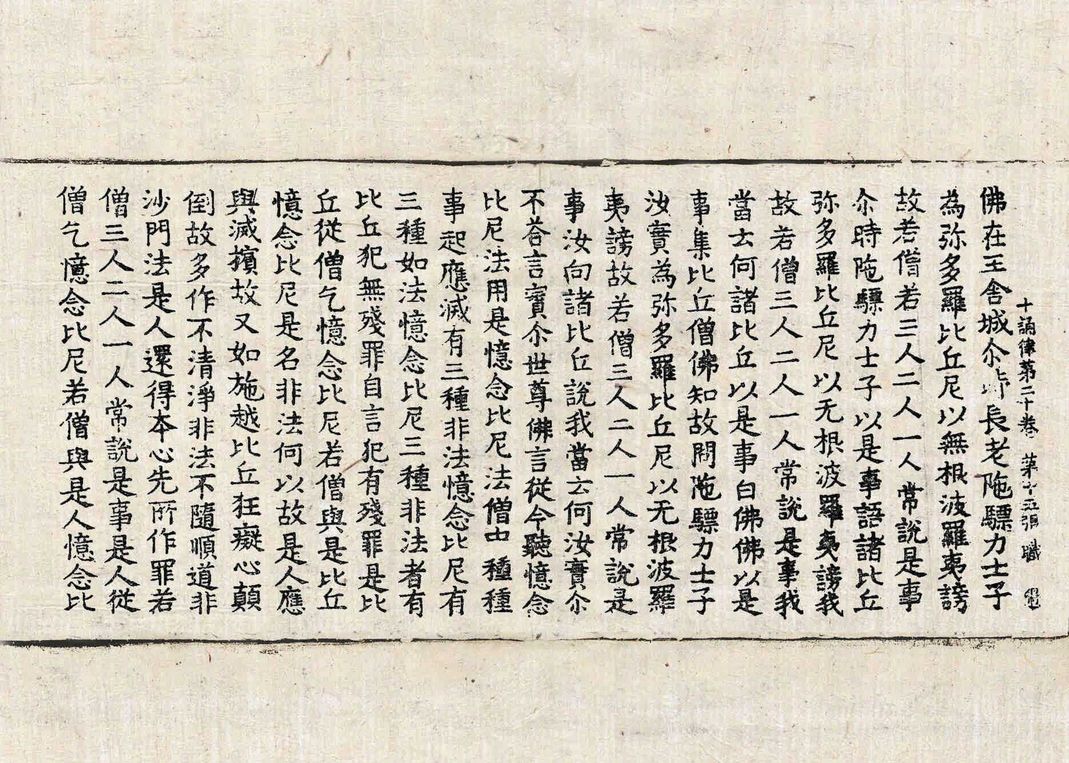 十誦律第二十卷 第十五張 職
佛在王舍城尒時長老陁驃力士子
為弥多羅比丘尼以無根波羅夷謗
故若僧若三人二人一人常說是事
尒時陁驃力士子以是事語諸比丘
弥多羅比丘尼以无根波羅夷謗我
故若僧三人二人一人常說是事我
當云何諸比丘以是事白佛佛以是
事集比丘僧佛知故問陁驃力士子
汝實為弥多羅比丘尼以无根波羅
夷謗故若僧三人二人一人常說是
事汝向諸比丘說我當云何汝實尒
不荅言實尒世尊佛言從今聽憶念
比尼法用是憶念比尼法僧中種種
事起應滅有三種非法憶念比尼有
三種如法憶念比尼三種非法者有
比丘犯無殘罪自言犯有殘罪是比
丘從僧乞憶念比尼若僧與是比丘
憶念比尼是名非法何以故是人應
與滅擯故又如施越比丘狂癡心顛
倒故多作不清淨非法不隨順道非
沙門法是人還得本心先所作罪若
僧三人二人一人常說是事是人從
僧乞憶念比尼若僧與是人憶念比